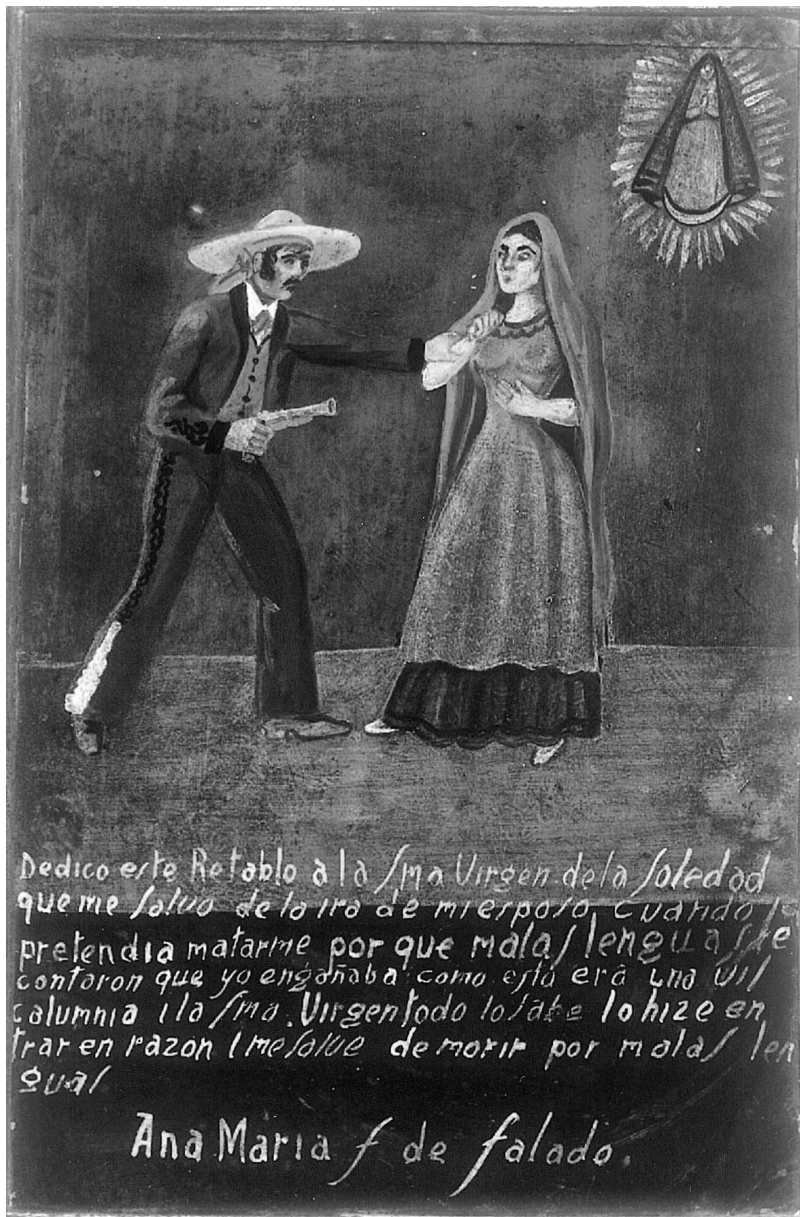 Dedico este Retablo a la Sma Virgen de la Soledad
que me salvo de la ira de mi esposo cuando
pretendia matarme por que malas lenguas le
contaron que yo engañaba como esta era una vil
calumnia i la Sma. Virgen todo lo sabe lo hize en
trar en razon i me salve de morir por malas len
guas
Ana Maria S de Salado.